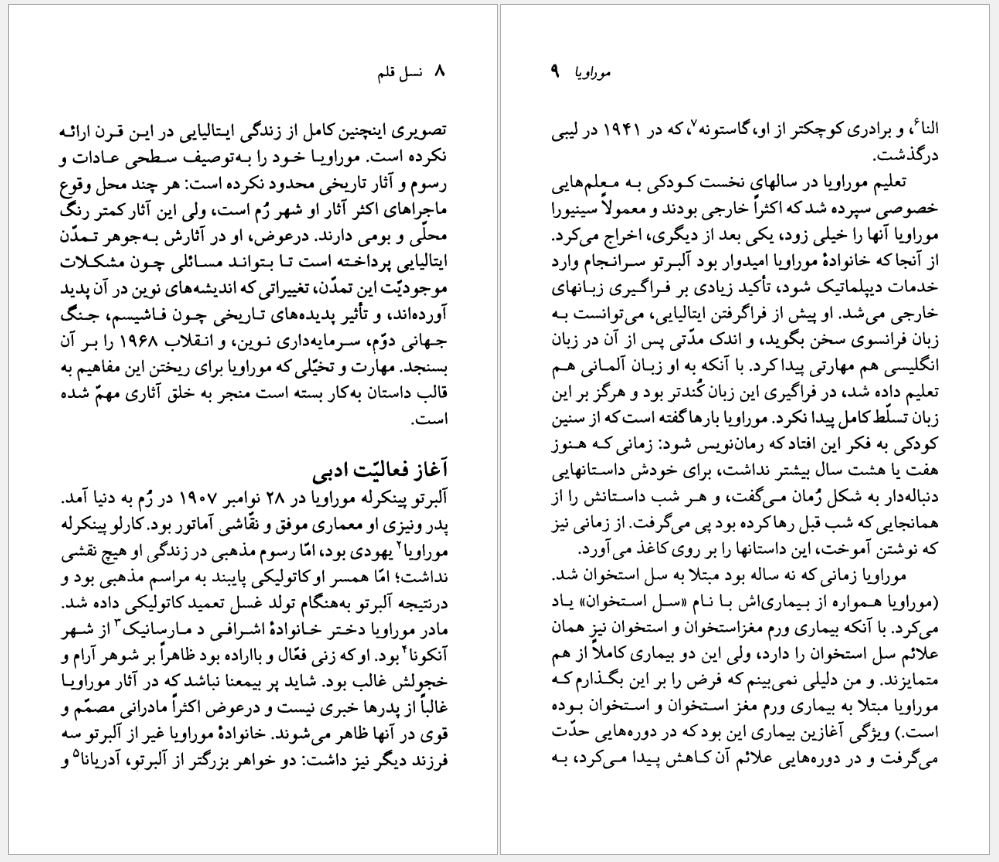 ۸ نسل قلم
تصویری اینچنین کامل از زندگی ایتالیایی در این قرن ارائه
نکرده است. موراویا خود را به‌توصیف سطحی عادات و
رسوم و آثار تاریخی محدود نکرده است: هر چند محل وقوع
ماجراهای اکثر آثار او شهر رُم است، ولی این آثار کمتر رنگ
محلّی و بومی دارند. درعوض، او در آثارش به‌جوهر تمدّن
ایتالیایی پرداخته است تا بتواند مسائلی چون مشکلات
موجودیّت این تمدّن، تغییراتی که اندیشه‌های نوین در آن پدید
آورده‌اند، و تأثیر پدیده‌های تاریخی چون فاشیسم، جنگ
جهانی دوّم، سرمایه‌داری نوین، و انقلاب ۱۹۶۸ را بر آن
بسنجد. مهارت و تخیّلی که موراویا برای ریختن این مفاهیم به
قالب داستان به‌کار بسته است منجر به خلق آثاری مهمّ شده
است.
آغاز فعالیّت ادبی
آلبرتو پینکرله موراویا در ۲۸ نوامبر ۱۹۰۷ در رُم به دنیا آمد.
پدر ونیزی او معماری موفق و نقّاشی آماتور بود. کارلو پینکرله
موراویا۲ یهودی بود، امّا رسوم مذهبی در زندگی او هیچ نقشی
نداشت؛ امّا همسر او کاتولیکی پایبند به مراسم مذهبی بود و
درنتیجه آلبرتو به‌هنگام تولد غسل تعمید کاتولیکی داده شد.
مادر موراویا دختر خانوادهٔ اشرافی د مارسانیک۳ از شهر
آنکونا۴ بود. او که زنی فعّال و بااراده بود ظاهراً بر شوهر آرام و
خجولش غالب بود. شاید پر بیمعنا نباشد که در آثار موراویا
غالباً از پدرها خبری نیست و درعوض اکثراً مادرانی مصمّم و
قوی در آنها ظاهر می‌شوند. خانوادهٔ موراویا غیر از آلبرتو سه
فرزند دیگر نیز داشت: دو خواهر بزرگتر از آلبرتو، آدریانا۵ و
موراویا ۹
النا۶، و برادری کوچکتر از او، گاستونه۷، که در ۱۹۴۱ در لیبی
درگذشت.
تعلیم موراویا در سالهای نخست کودکی به معلم‌هایی
خصوصی سپرده شد که اکثراً خارجی بودند و معمولاً سینیورا
موراویا آنها را خیلی زود، یکی بعد از دیگری، اخراج می‌کرد.
از آنجا که خانوادهٔ موراویا امیدوار بود آلبرتو سرانجام وارد
خدمات دیپلماتیک شود، تأکید زیادی بر فراگیری زبانهای
خارجی می‌شد. او پیش از فراگرفتن ایتالیایی، می‌توانست به
زبان فرانسوی سخن بگوید، و اندک مدّتی پس از آن در زبان
انگلیسی هم مهارتی پیدا کرد. با آنکه به او زبان آلمانی هم
تعلیم داده شد، در فراگیری این زبان کُندتر بود و هرگز بر این
زبان تسلّط کامل پیدا نکرد. موراویا بارها گفته است که از سنین
کودکی به فکر این افتاد که رمان‌نویس شود: زمانی که هنوز
هفت یا هشت سال بیشتر نداشت، برای خودش داستانهایی
دنباله‌دار به شکل رُمان می‌گفت، و هر شب داستانش را از
همانجایی که شب قبل رها کرده بود پی می‌گرفت. از زمانی نیز
که نوشتن آموخت، این داستانها را بر روی کاغذ می‌آورد.
موراویا زمانی که نه ساله بود مبتلا به سل استخوان شد.
(موراویا همواره از بیماری‌اش با نام «سل استخوان» یاد
می‌کرد. با آنکه بیماری ورم مغزاستخوان و استخوان نیز همان
علائم سل استخوان را دارد، ولی این دو بیماری کاملاً از هم
متمایزند. و من دلیلی نمی‌بینم که فرض را بر این بگذارم که
موراویا مبتلا به بیماری ورم مغز استخوان و استخوان بوده
است.) ویژگی آغازین بیماری این بود که در دوره‌هایی حدّت
می‌گرفت و در دوره‌هایی علائم آن کاهش پیدا می‌کرد، به